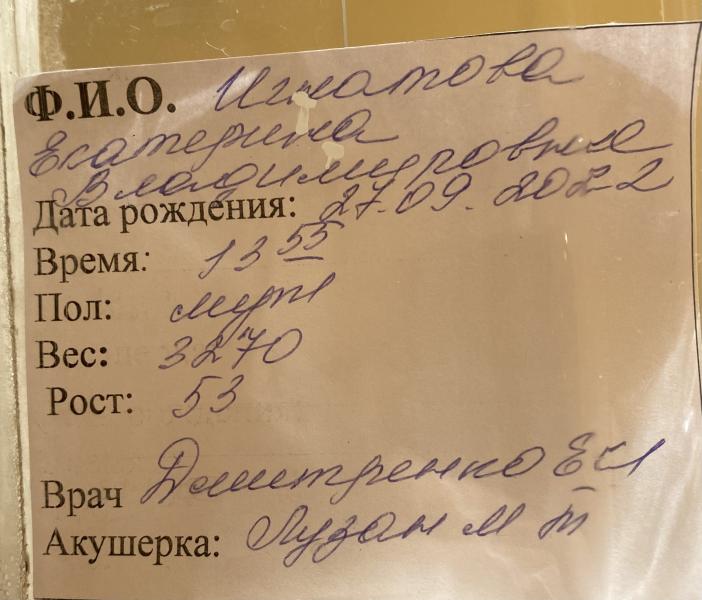 Ф.И.О. Игнатова
Екатерина
Владимировна
Дата рождения: 27.09.2022
Время: 13 55
Пол: муж
Вес: 3270
Рост: 53
Врач Дмитренко Е
Акушерка: Лузан М Т